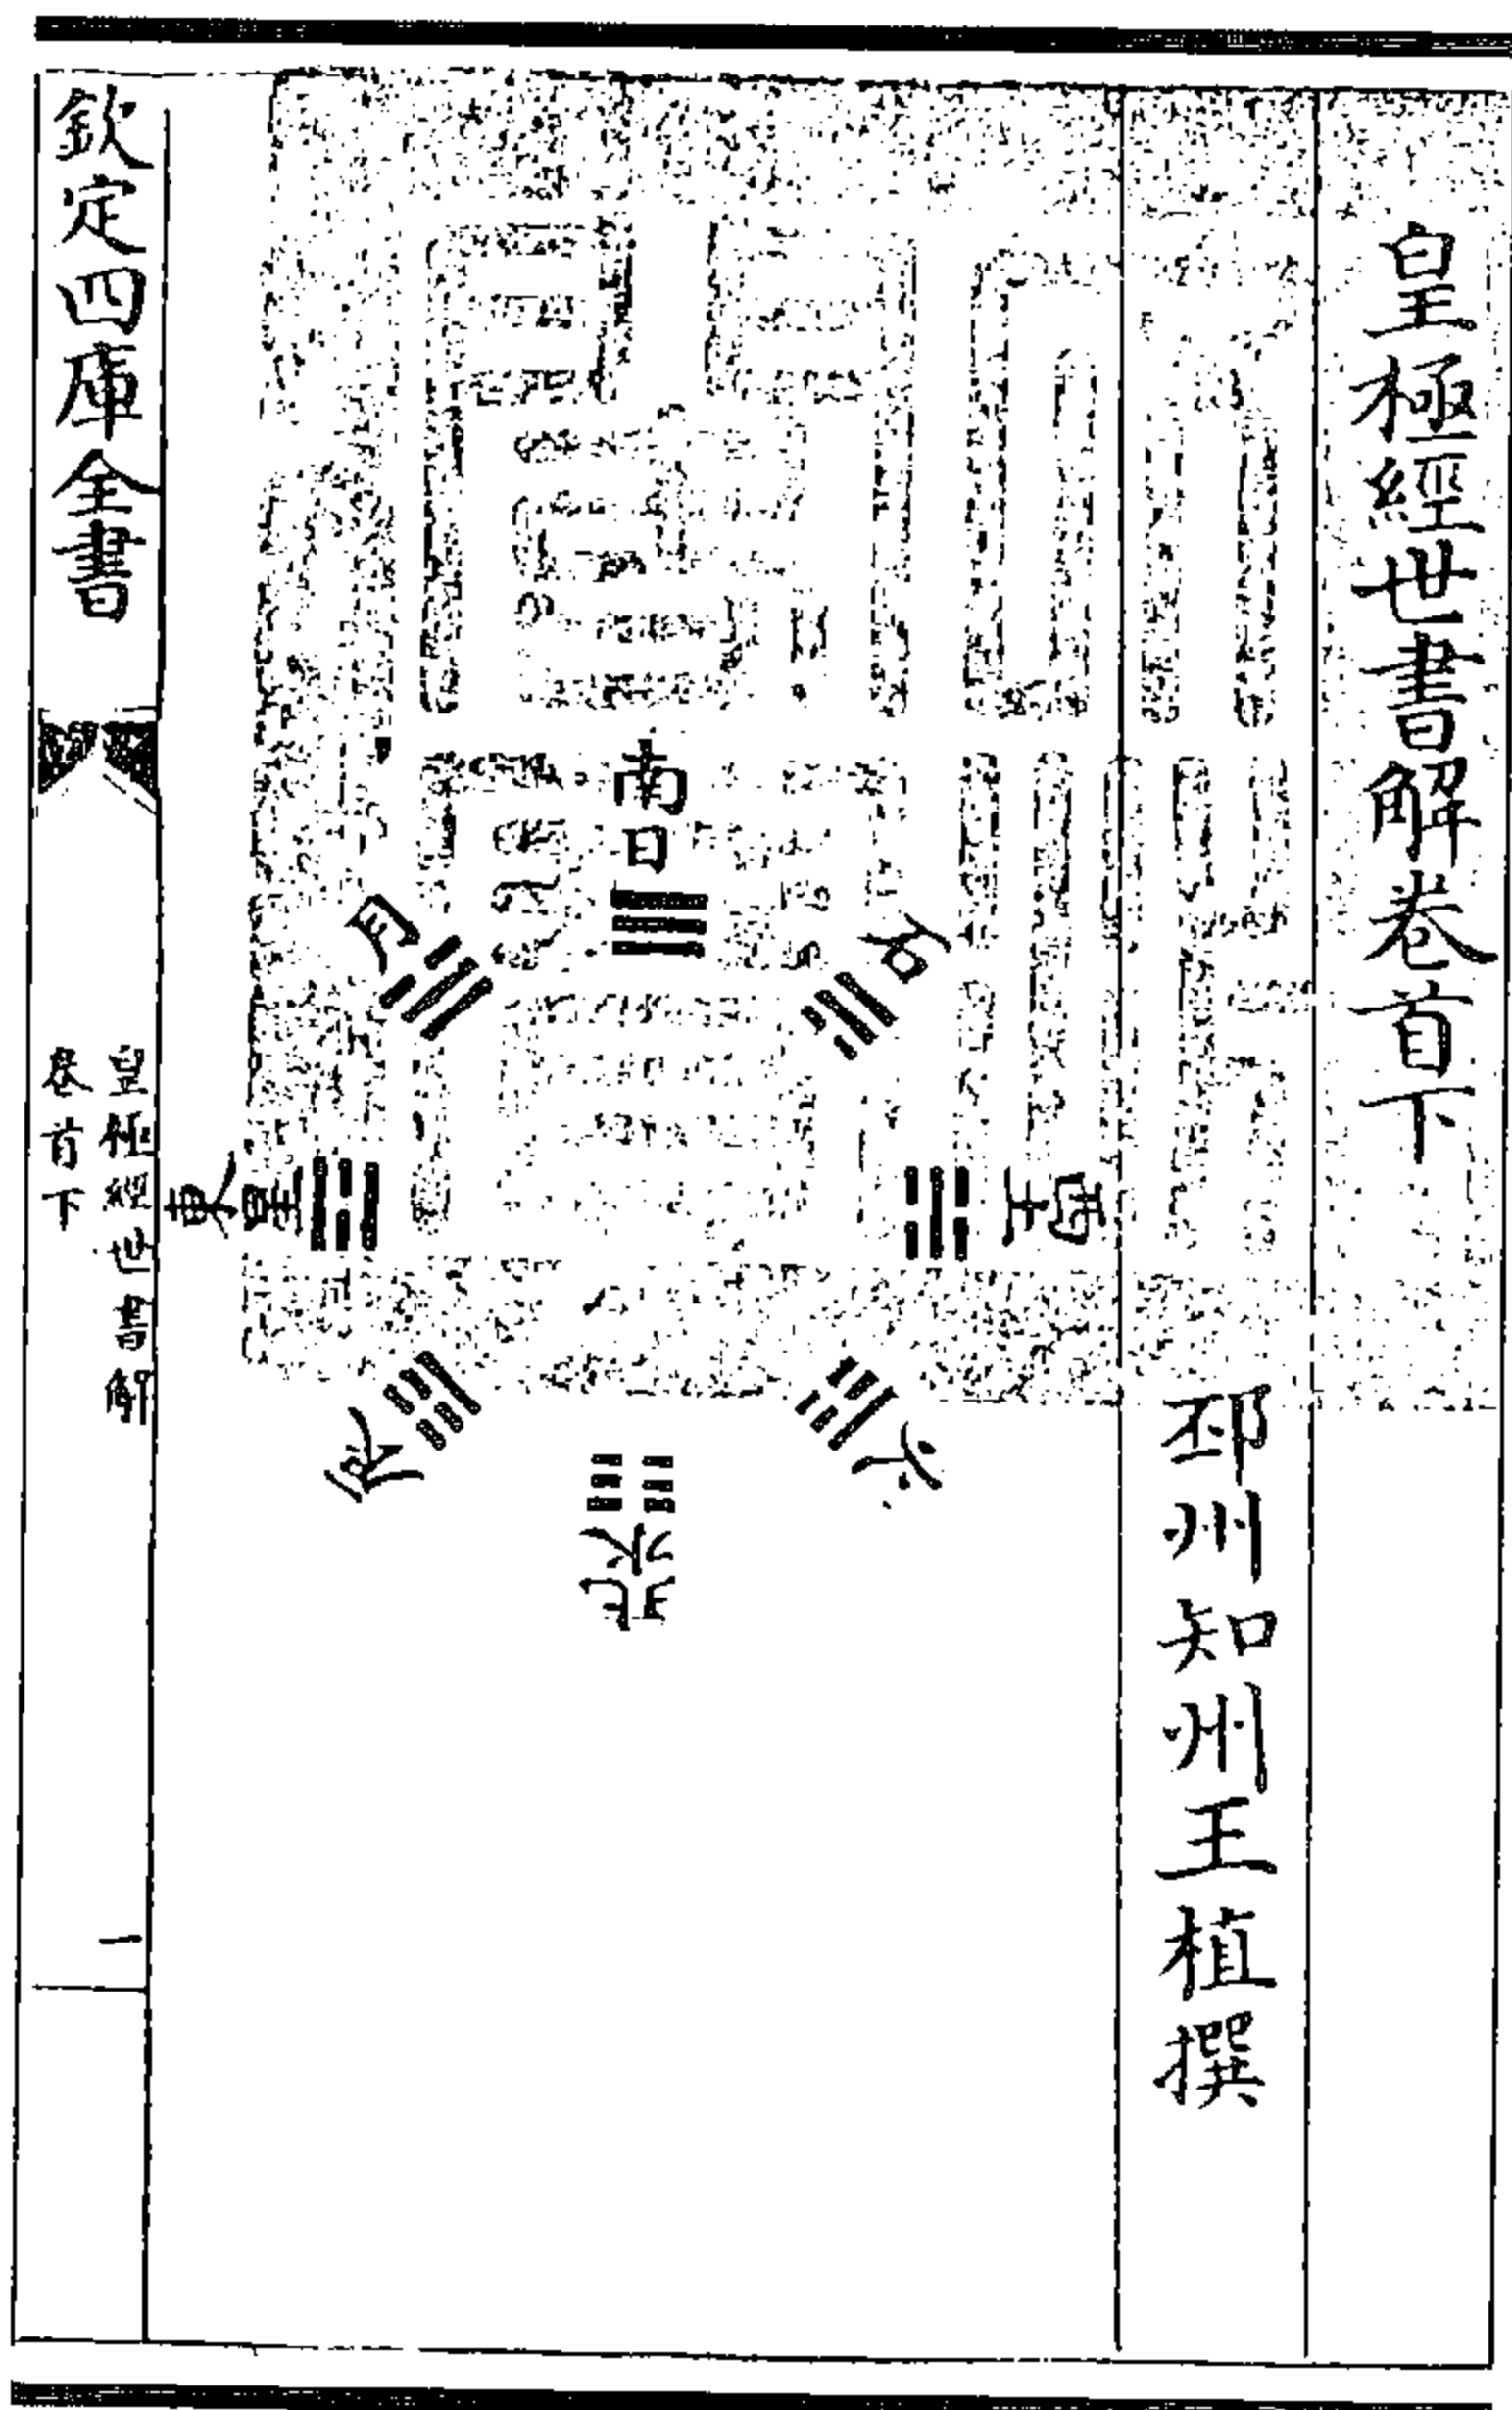 皇極經世書解卷首下
邳州知州王植撰
南日
石
西土
火
北水
辰
東星
月
欽定四庫全書
皇極經世書解
卷首下
一